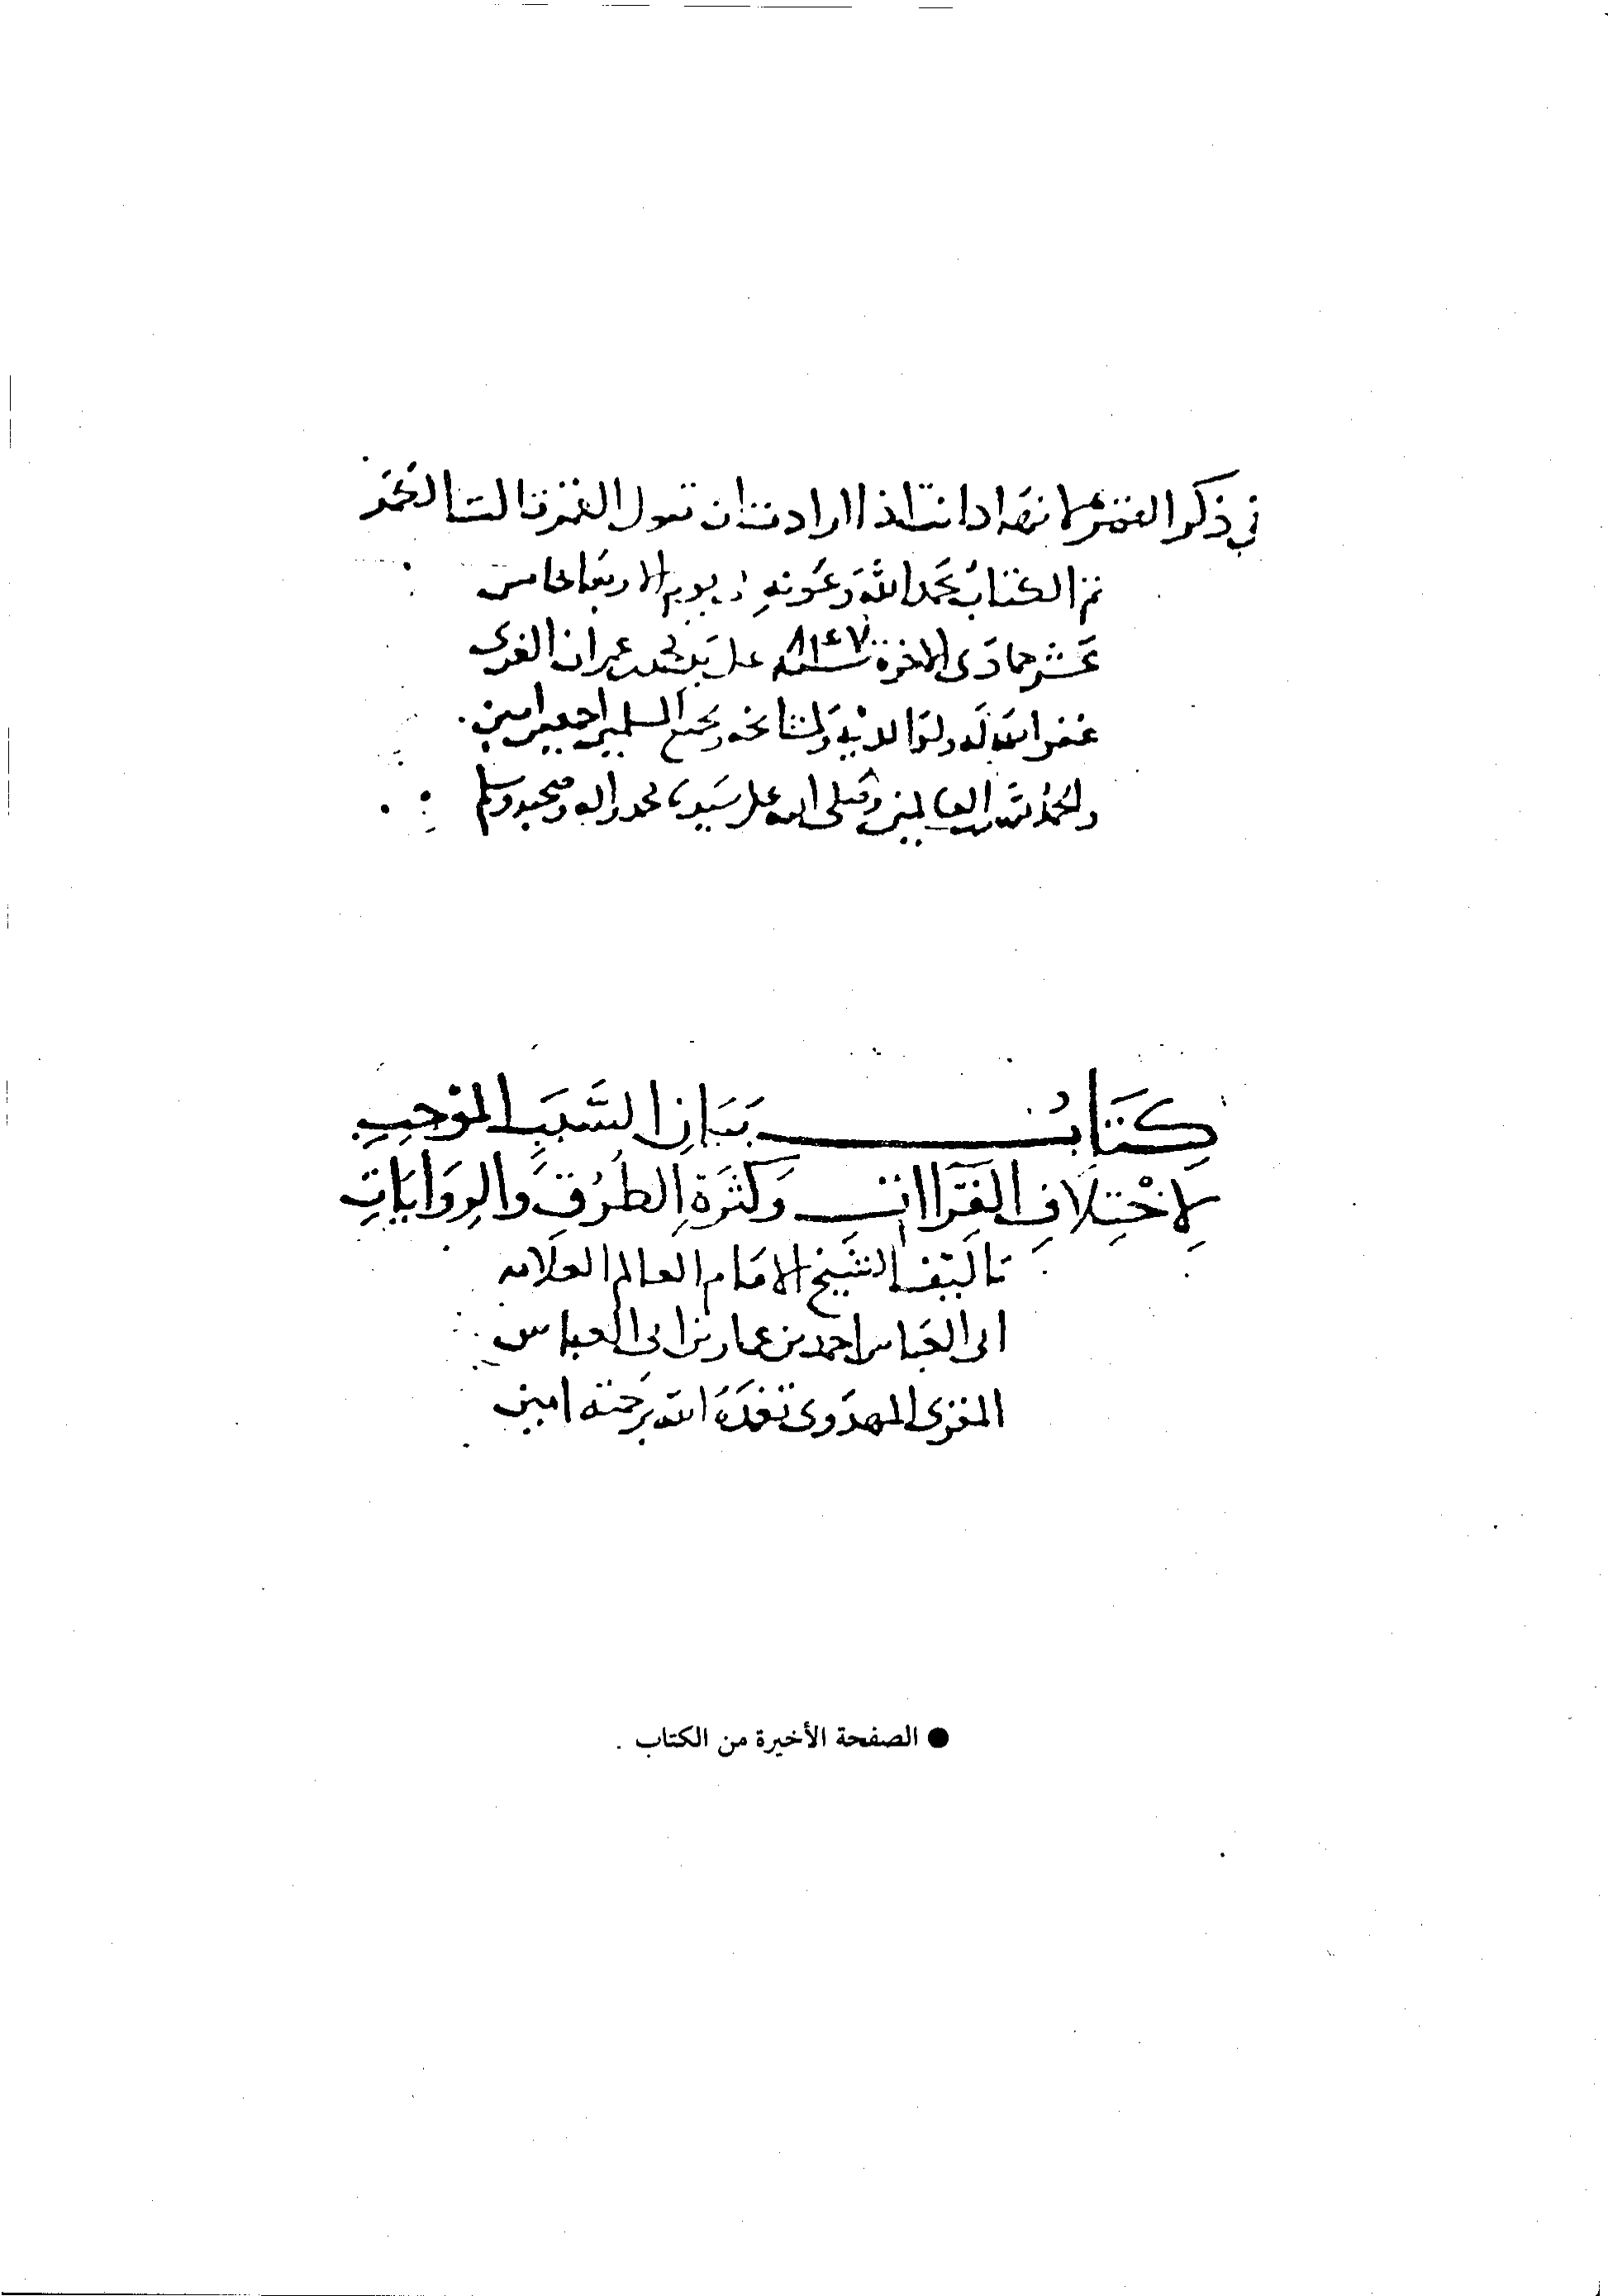 في ذكر القمر لانها دانت اذا ارادت ان تقول القمر قالت الخمر
تم الكتاب بحمد الله وعونه في يوم الاربعا خامس
عشر جمادى الاخرة سنة ٨٤٧ على يد محمد بن عمران الغزى
غفر الله له ولوالديه ولمشائخه ولجميع المسلمين اجمعين امين
والحمد لله رب العالمين وصلى الله على سيدنا محمد واله وصحبه وسلم
كِتَابُ بَيَانِ السَّبَبِ الموْجِبِ
لِاخْتِلَافِ القِرَاآتِ وَكَثْرَةِ الطُرُقِ وَالرِوَايَاتِ
تاليف الشيخ الامام العالم العلامه
ابى العباس احمد بن عمار بن ابى العباس
المقرى المهدوى تغمده الله برحمته امين
● الصفحة الأخيرة من الكتاب .